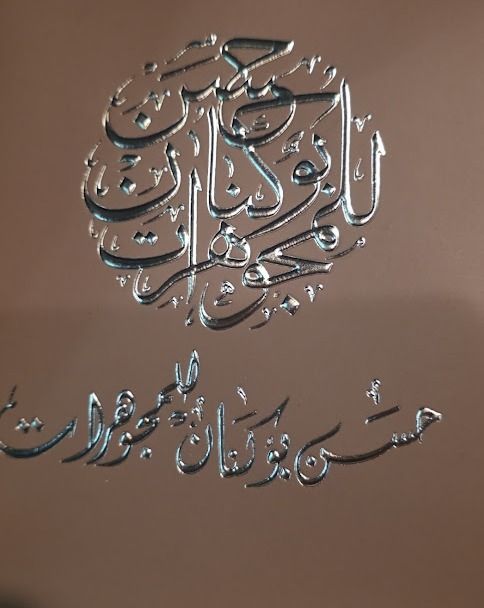 حسن بوكنان للمجوهرات
حَسَن بوكنان للمجوهرات